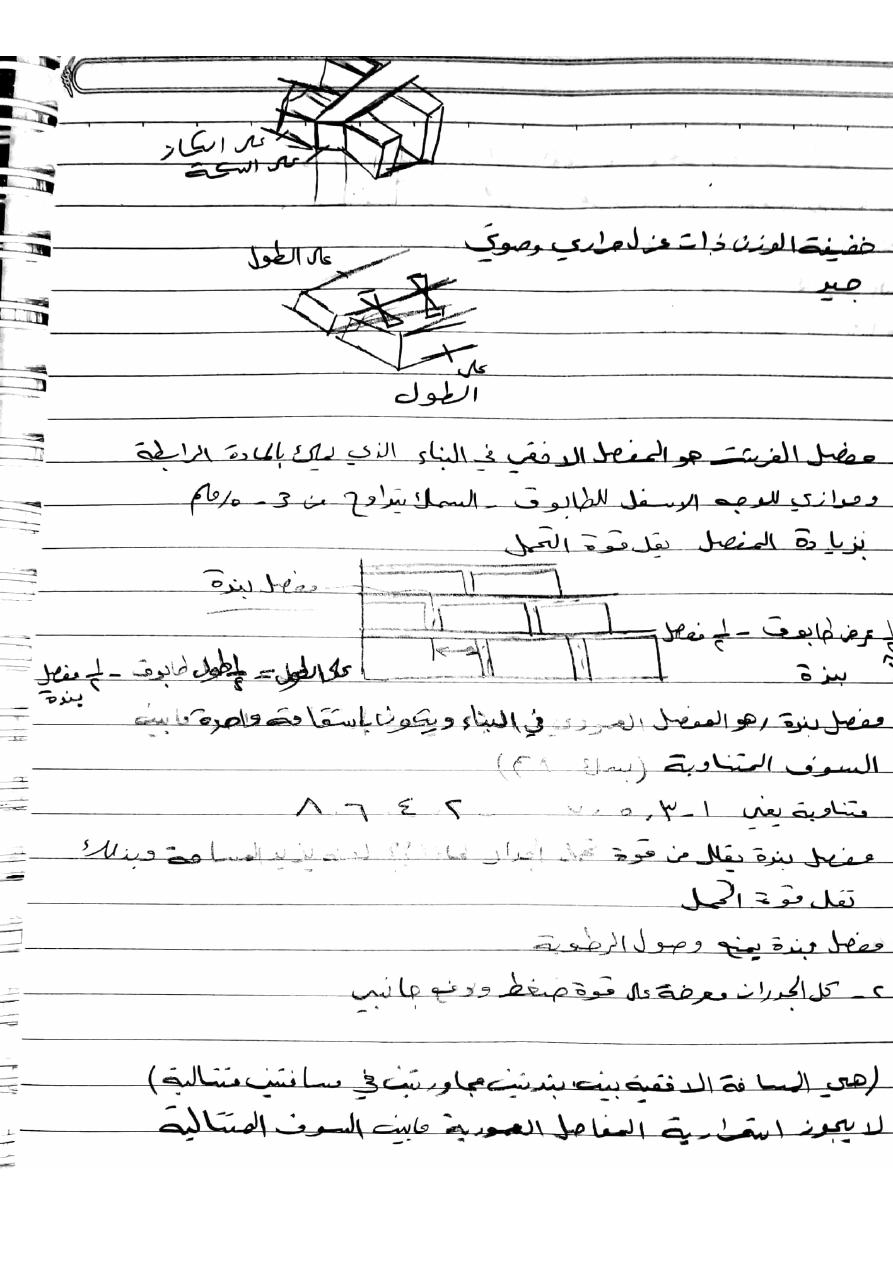 على الكاز
على السكة
خفيفة الوزن ذات عزل حراري وصوتي
جيد
على الطول
على
الطول
مفصل الفرشة هو المفصل الافقي في البناء الذي يملئ بالمادة الرابطة
وموازي للوجه الاسفل للطابوق - السمك يتراوح من 3 -
بزيادة المفصل يقل قوة التحمل
مفصل بندة
عرض طابوق - مفصل
بندة
على الطول = طول طابوق - مفصل
بندة
مفصل بندة / هو المفصل العمودي في البناء ويكون باستقامة واحدة مابين
السوف المتناوبة
متناوبة يعني ١ - ٣، ٥، ٧ ٢ ٤ ٦ ٨
مفصل بندة يقلل من قوة تحمل الجدار يزيد المساحة وبذلك
تقل قوة التحمل
مفصل بندة يمنع وصول الرطوبة
٢ - كل الجدران معرضة على قوة ضغط ودفع جانبي
(هي المسافة الافقية بين بندتين مجاورتين في سافتين متتالية)
لا يجوز استمرارية المفاصل العمودية مابين السوف المتتالية